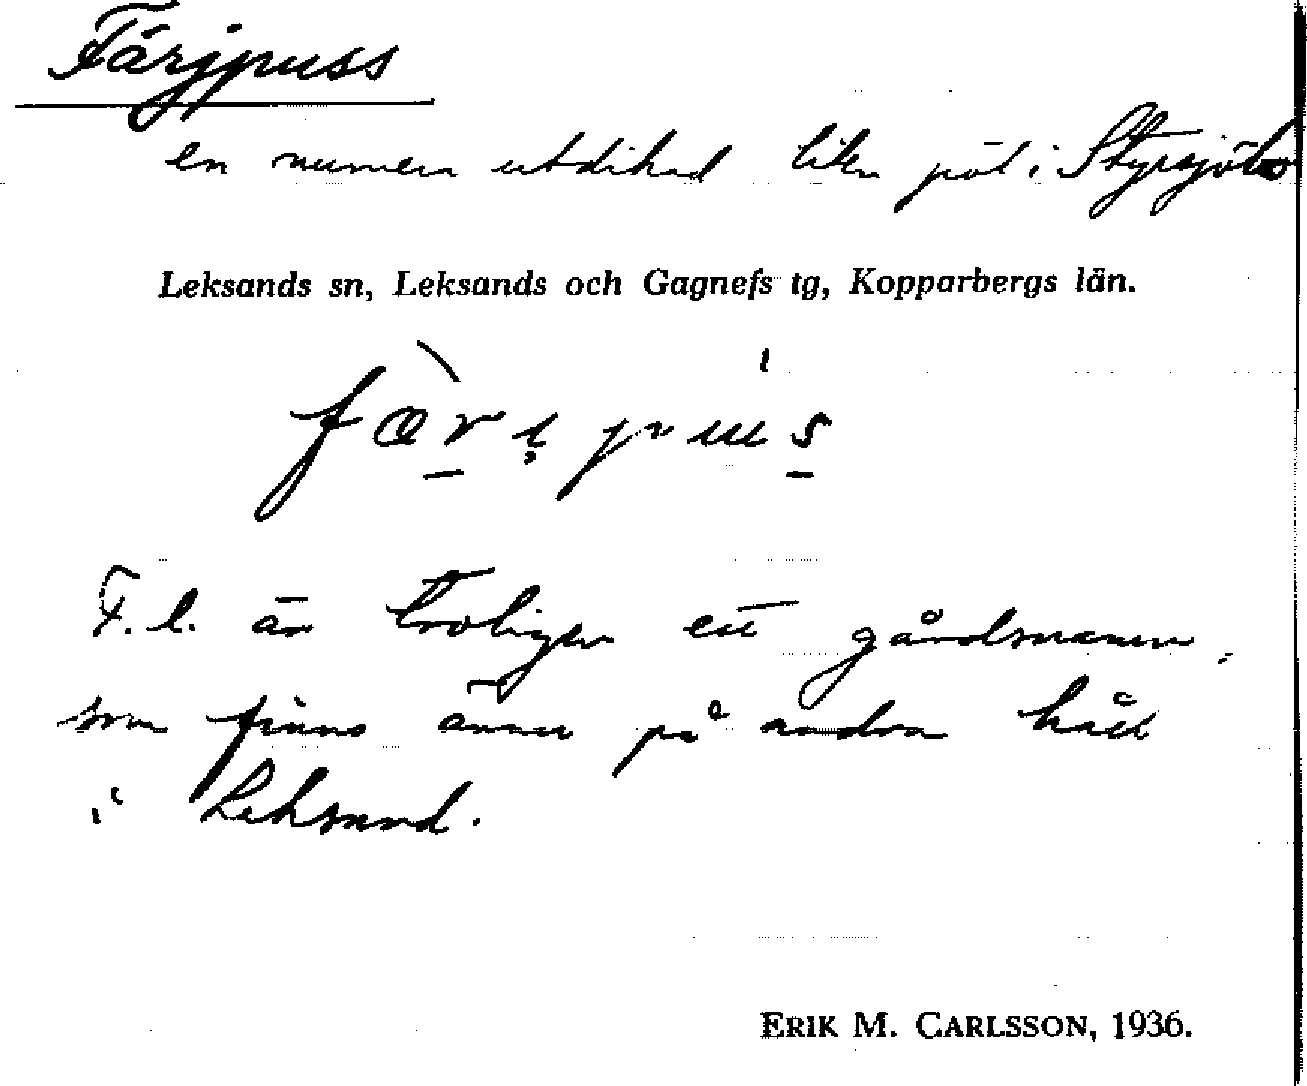 Färjpuss
en numera utdikad liten pöl i Styrsjöbo
Leksands sn, Leksands och Gagnefs tg, Kopparbergs län.
færi̥pus
F.l. är troligen ett gårdsnamn,
som finns ännu på andra håll
i Leksand.
ERIK M. CARLSSON, 1936.